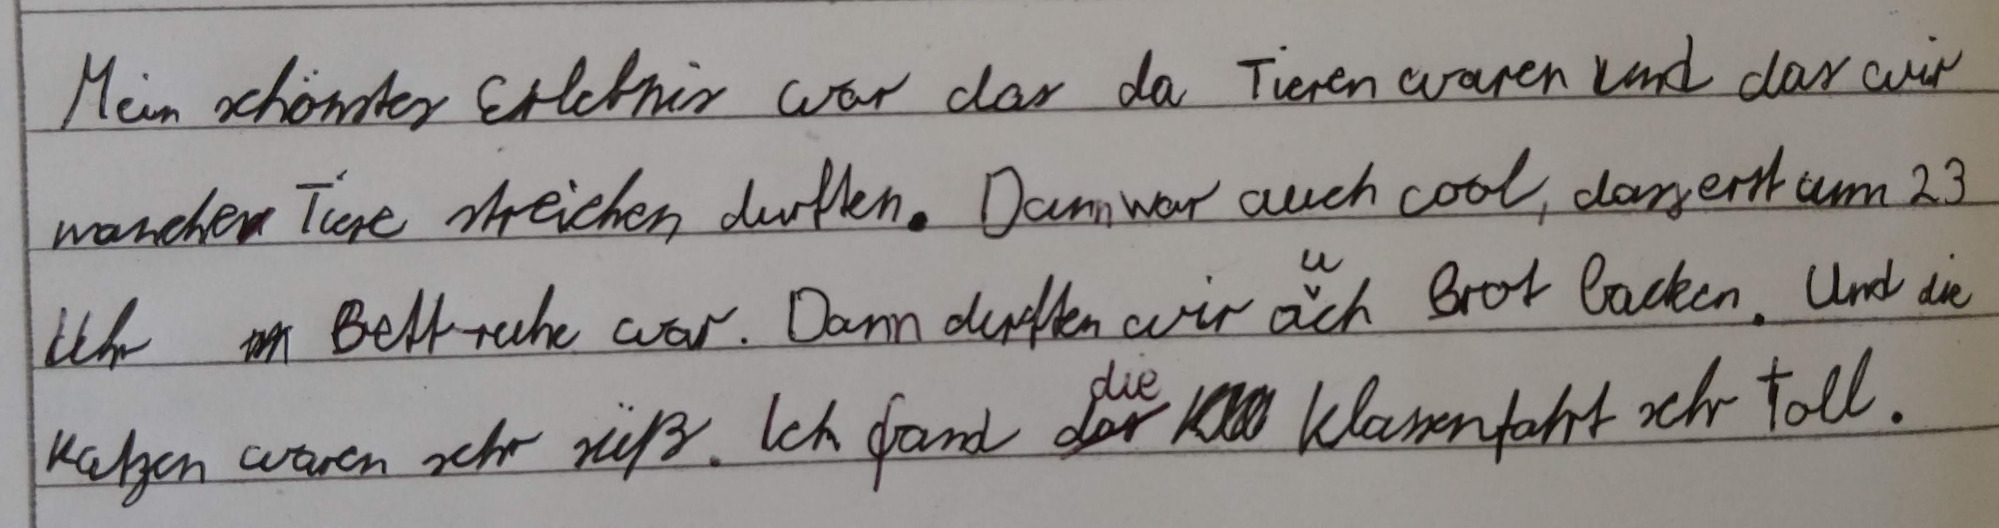 Mein schönster Erlebnis war das da Tieren waren und das wir
manchen Tiere streichen durften. Dann war auch cool, dass erst um 23
Uhr Bettruhe war. Dann durften wir auch Brot backen. Und die
Katzen waren sehr süß. Ich fand die Klassenfahrt sehr toll.